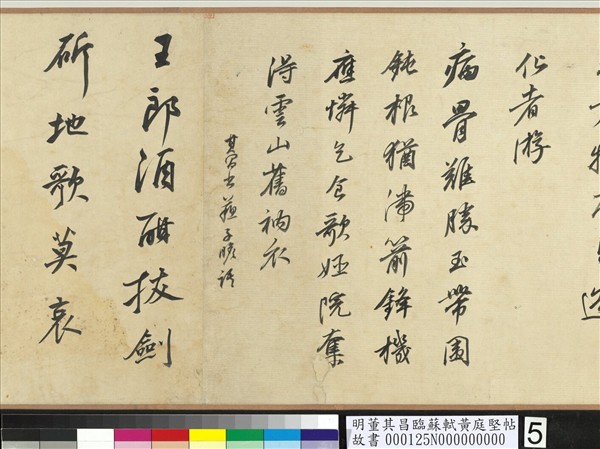 仙者游
病骨難勝玉帶圍
鈍根猶滯箭鋒機
應憐乞食歌姬院奪
得雲山舊衲衣
其昌書蘇子瞻詩
王郎酒酣拔劍
斫地歌莫哀
明董其昌臨蘇軾黃庭堅帖
故書 000125N000000000
5